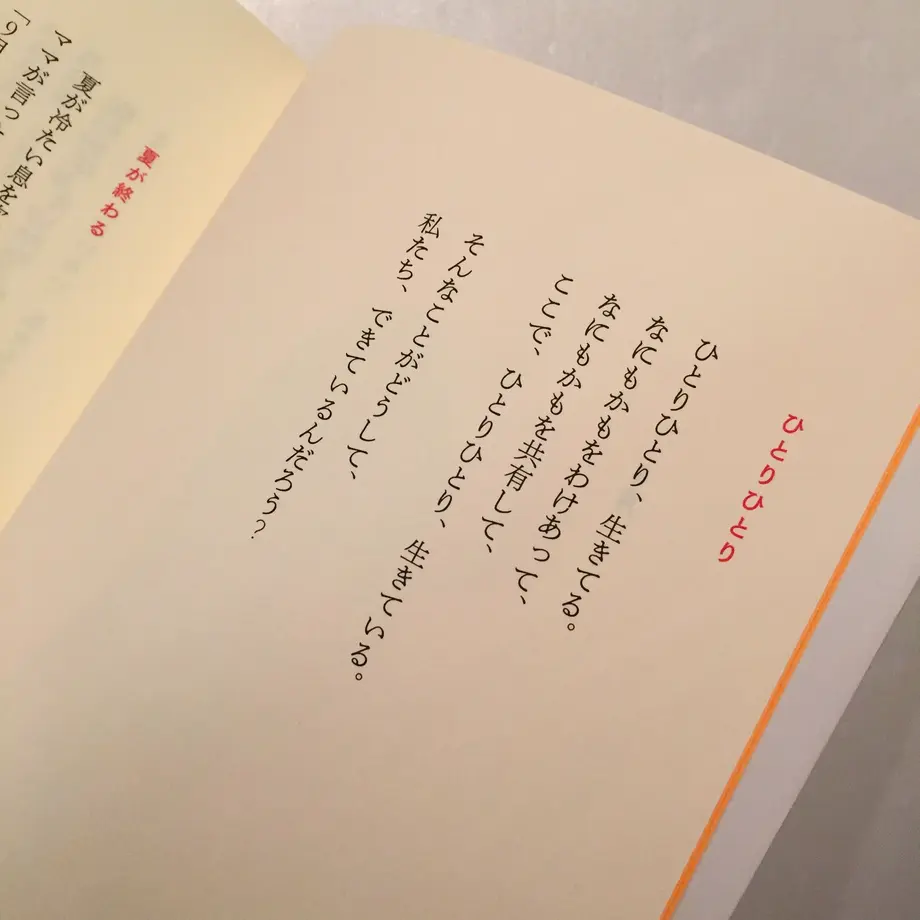 ひとりひとり
ひとりひとり、生きてる。
なにもかもをわけあって、
なにもかもを共有して、
ここで、ひとりひとり、生きている。
そんなことがどうして、
私たち、できているんだろう？
夏が終わる
夏が冷たい息を
ママが言っ
「9月